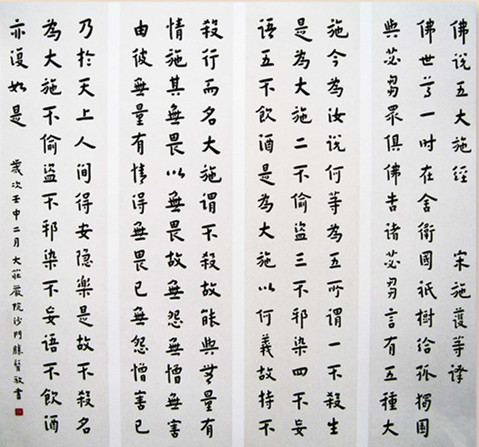 佛說五大施經　宋施護等譯
佛世尊一時在舍衛國祇樹給孤獨園
與苾芻眾俱佛告諸苾芻言有五種大
施今為汝說何等為五所謂一不殺生
是為大施二不偷盜三不邪染四不妄
語五不飲酒是為大施以何義故持不
殺行而名大施謂不殺故能與無量有
情施其無畏以無畏故無怨無憎無害
由彼無量有情得無畏已無怨憎害已
乃於天上人間得安隱樂是故不殺名
為大施不偷盜不邪染不妄語不飲酒
亦復如是　歲次壬申二月大莊嚴院沙門敬書